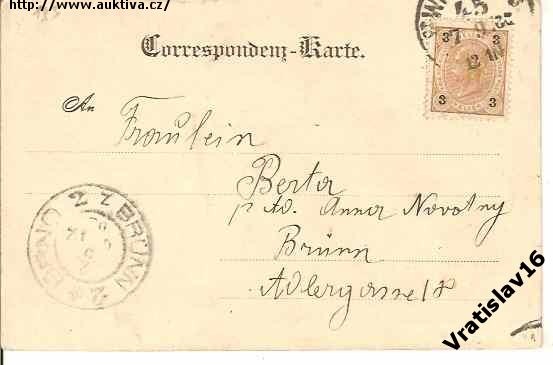 http://www.auktiva.cz/
Correspondenz-Karte.
3 3
3 3
An
Fräulein
Berta
p. Ad. Anna Novotny
Brünn
Adlergasse 18
BRÜNN 2 * BRNO 2
Vratislav16